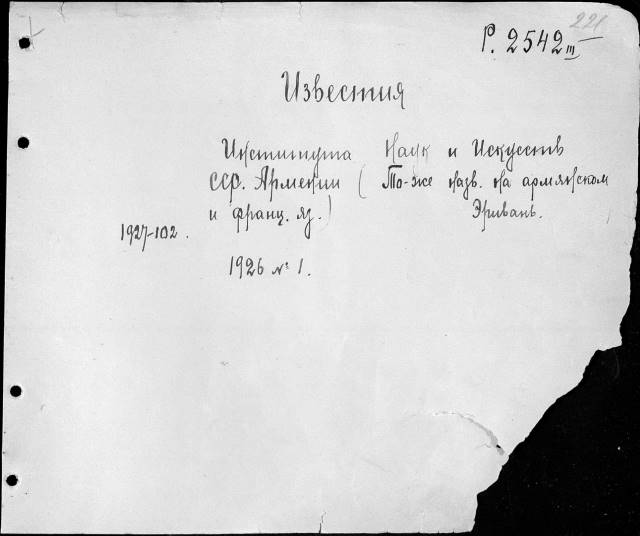 221
Р. 2542 III
Известия
Института Наук и Искусств
ССР. Армении ( То-же назв. на армянском
и франц. яз. ) Эривань.
1927-102.
1926 № 1.